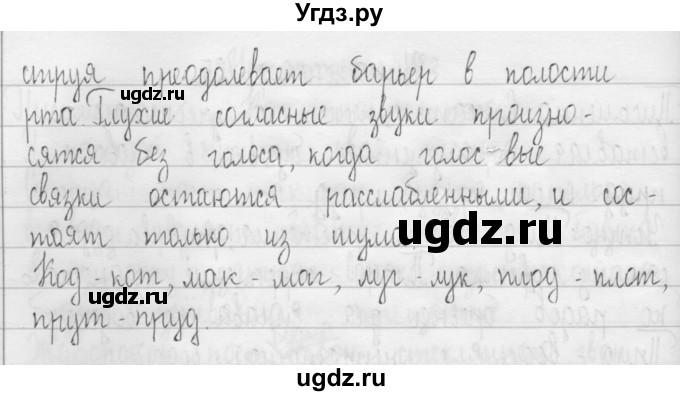 Угдз.ру
струя преодолевает барьер в полости
ugdz.ru
ugdz.ru
рта Глухие согласные звуки произно-
сятся без голоса, когда голос-вые
связки остаются расслабленными, и сос-
таят только из шума
ugdz.ru
Код - кот, мак - маг, луг - лук, плод - плот,
ugdz.ru
прут - пруд.
ugdz.ru
ugdz.ru